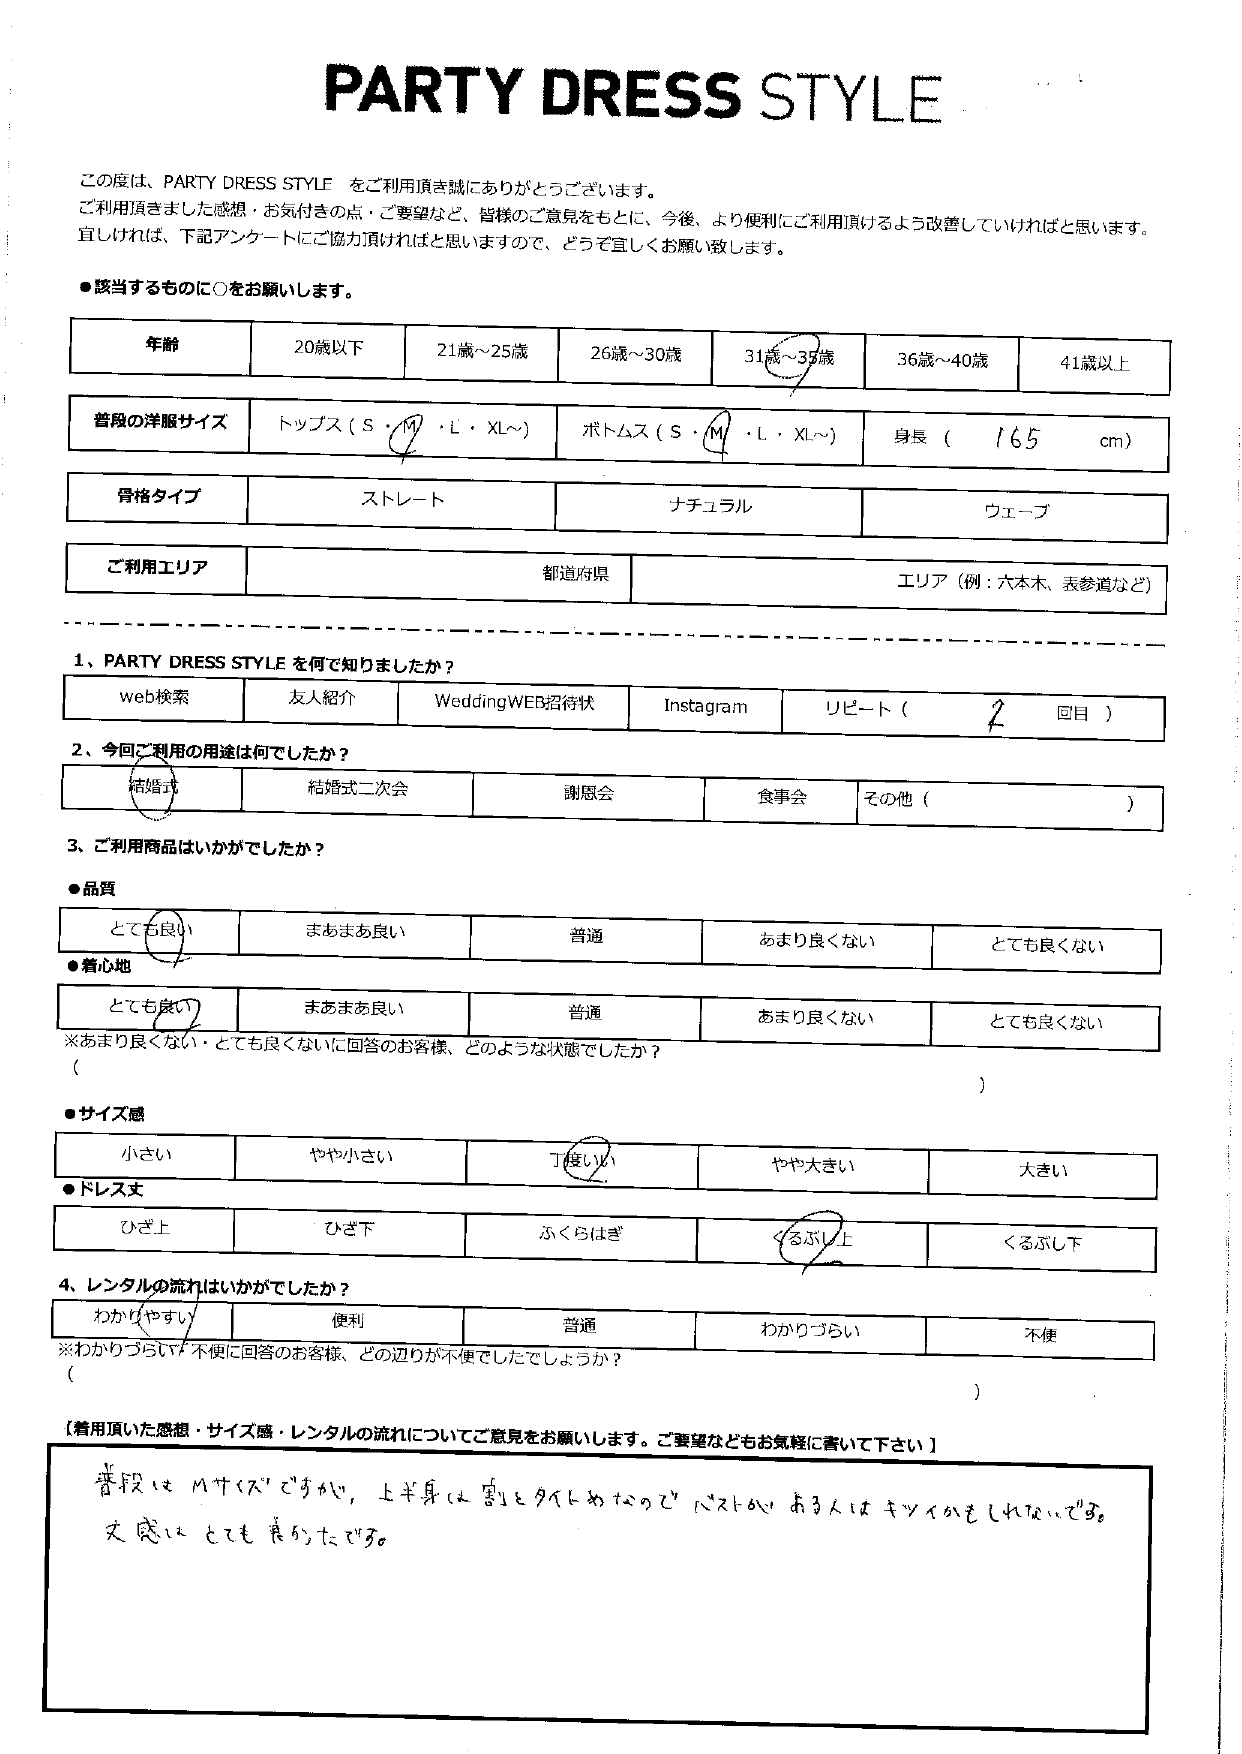 PARTY DRESS STYLE
この度は、PARTY DRESS STYLE をご利用頂き誠にありがとうございます。
ご利用頂きました感想・お気付きの点・ご要望など、皆様のご意見をもとに、今後、より便利にご利用頂けるよう改善していければと思います。
宜しければ、下記アンケートにご協力頂ければと思いますので、どうぞ宜しくお願い致します。
●該当するものに○をお願いします。
年齢 20歳以下 21歳～25歳 26歳～30歳 31歳～35歳 36歳～40歳 41歳以上
普段の洋服サイズ トップス ( S ・ M ・ L ・ XL～) ボトムス ( S ・ M ・ L ・ XL～) 身長 ( 165 cm)
骨格タイプ ストレート ナチュラル ウェーブ
ご利用エリア 都道府県 エリア（例：六本木、表参道など）
1、PARTY DRESS STYLE を何で知りましたか？
web検索 友人紹介 WeddingWEB招待状 Instagram リピート ( 2 回目 )
2、今回ご利用の用途は何でしたか？
結婚式 結婚式二次会 謝恩会 食事会 その他 ( )
3、ご利用商品はいかがでしたか？
●品質
とても良い まあまあ良い 普通 あまり良くない とても良くない
●着心地
とても良い まあまあ良い 普通 あまり良くない とても良くない
※あまり良くない・とても良くないに回答のお客様、どのような状態でしたか？
( )
●サイズ感
小さい やや小さい 丁度いい やや大きい 大きい
●ドレス丈
ひざ上 ひざ下 ふくらはぎ くるぶし上 くるぶし下
4、レンタルの流れはいかがでしたか？
わかりやすい 便利 普通 わかりづらい 不便
※わかりづらい・不便に回答のお客様、どの辺りが不便でしたでしょうか？
( )
【着用頂いた感想・サイズ感・レンタルの流れについてご意見をお願いします。ご要望などもお気軽に書いて下さい】
普段は Mサイズですが、上半身は割とタイトめなので バストが ある人は キツイかもしれないです。
丈感は とても 良かったです。